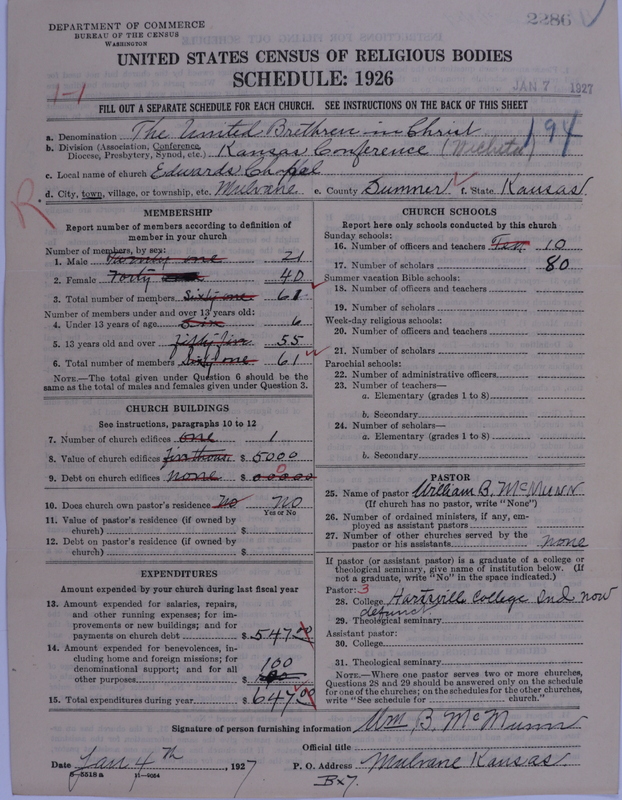 DEPARTMENT OF COMMERCE
BUREAU OF THE CENSUS
WASHINGTON
2286
UNITED STATES CENSUS OF RELIGIOUS BODIES
SCHEDULE: 1926
JAN 7 1927
1-1
FILL OUT A SEPARATE SCHEDULE FOR EACH CHURCH. SEE INSTRUCTIONS ON THE BACK OF THIS SHEET
a. Denomination The United Brethren in Christ
194
b. Division (Association, Conference, Diocese, Presbytery, Synod, etc.) Kansas Conference (Wichita)
c. Local name of church Edwards Chapel
d. City, town, village, or township, etc. Mulvane e. County Sumner f. State Kansas
R
MEMBERSHIP
Report number of members according to definition of
member in your church
Number of members, by sex:
1. Male Twenty one 21
2. Female Forty 40
3. Total number of members Sixty one 61
Number of members under and over 13 years old:
4. Under 13 years of age Six 6
5. 13 years old and over fifty five 55
6. Total number of members Sixty one 61
NOTE.—The total given under Question 6 should be the
same as the total of males and females given under Question 3.
CHURCH BUILDINGS
See instructions, paragraphs 10 to 12
7. Number of church edifices one 1
8. Value of church edifices $ 5000
9. Debt on church edifices none $ 0
10. Does church own pastor's residence? No No
Yes or No
11. Value of pastor's residence (if owned by
church) $
12. Debt on pastor's residence (if owned by
church) $
EXPENDITURES
Amount expended by your church during last fiscal year
13. Amount expended for salaries, repairs,
and other running expenses; for im-
provements or new buildings; and for
payments on church debt $ 547.00
14. Amount expended for benevolences, in-
cluding home and foreign missions; for
denominational support; and for all
other purposes $ 100
15. Total expenditures during year $ 647.00
CHURCH SCHOOLS
Report here only schools conducted by this church
Sunday schools:
16. Number of officers and teachers Ten 10
17. Number of scholars 80
Summer vacation Bible schools:
18. Number of officers and teachers
19. Number of scholars
Week-day religious schools:
20. Number of officers and teachers
21. Number of scholars
Parochial schools:
22. Number of administrative officers
23. Number of teachers—
a. Elementary (grades 1 to 8)
b. Secondary
24. Number of scholars—
a. Elementary (grades 1 to 8)
b. Secondary
PASTOR
25. Name of pastor William B. McMunn
(If church has no pastor, write "None")
26. Number of ordained ministers, if any, em-
ployed as assistant pastors
27. Number of other churches served by the
pastor or his assistants none
If pastor (or assistant pastor) is a graduate of a college or
theological seminary, give name of institution below. (If
not a graduate, write "No" in the space indicated.)
Pastor: 3
28. College Hartsville College Ind now
defunct
29. Theological seminary
Assistant pastor:
30. College
31. Theological seminary
NOTE.—Where one pastor serves two or more churches,
Questions 28 and 29 should be answered only on the schedule
for one of the churches; on the schedules for the other churches,
write "See schedule for church."
Signature of person furnishing information Wm B. McMunn
Official title
Date Jan 4th, 1927 P. O. Address Mulvane Kansas
8-5518 a 11-9024
Bx 7.